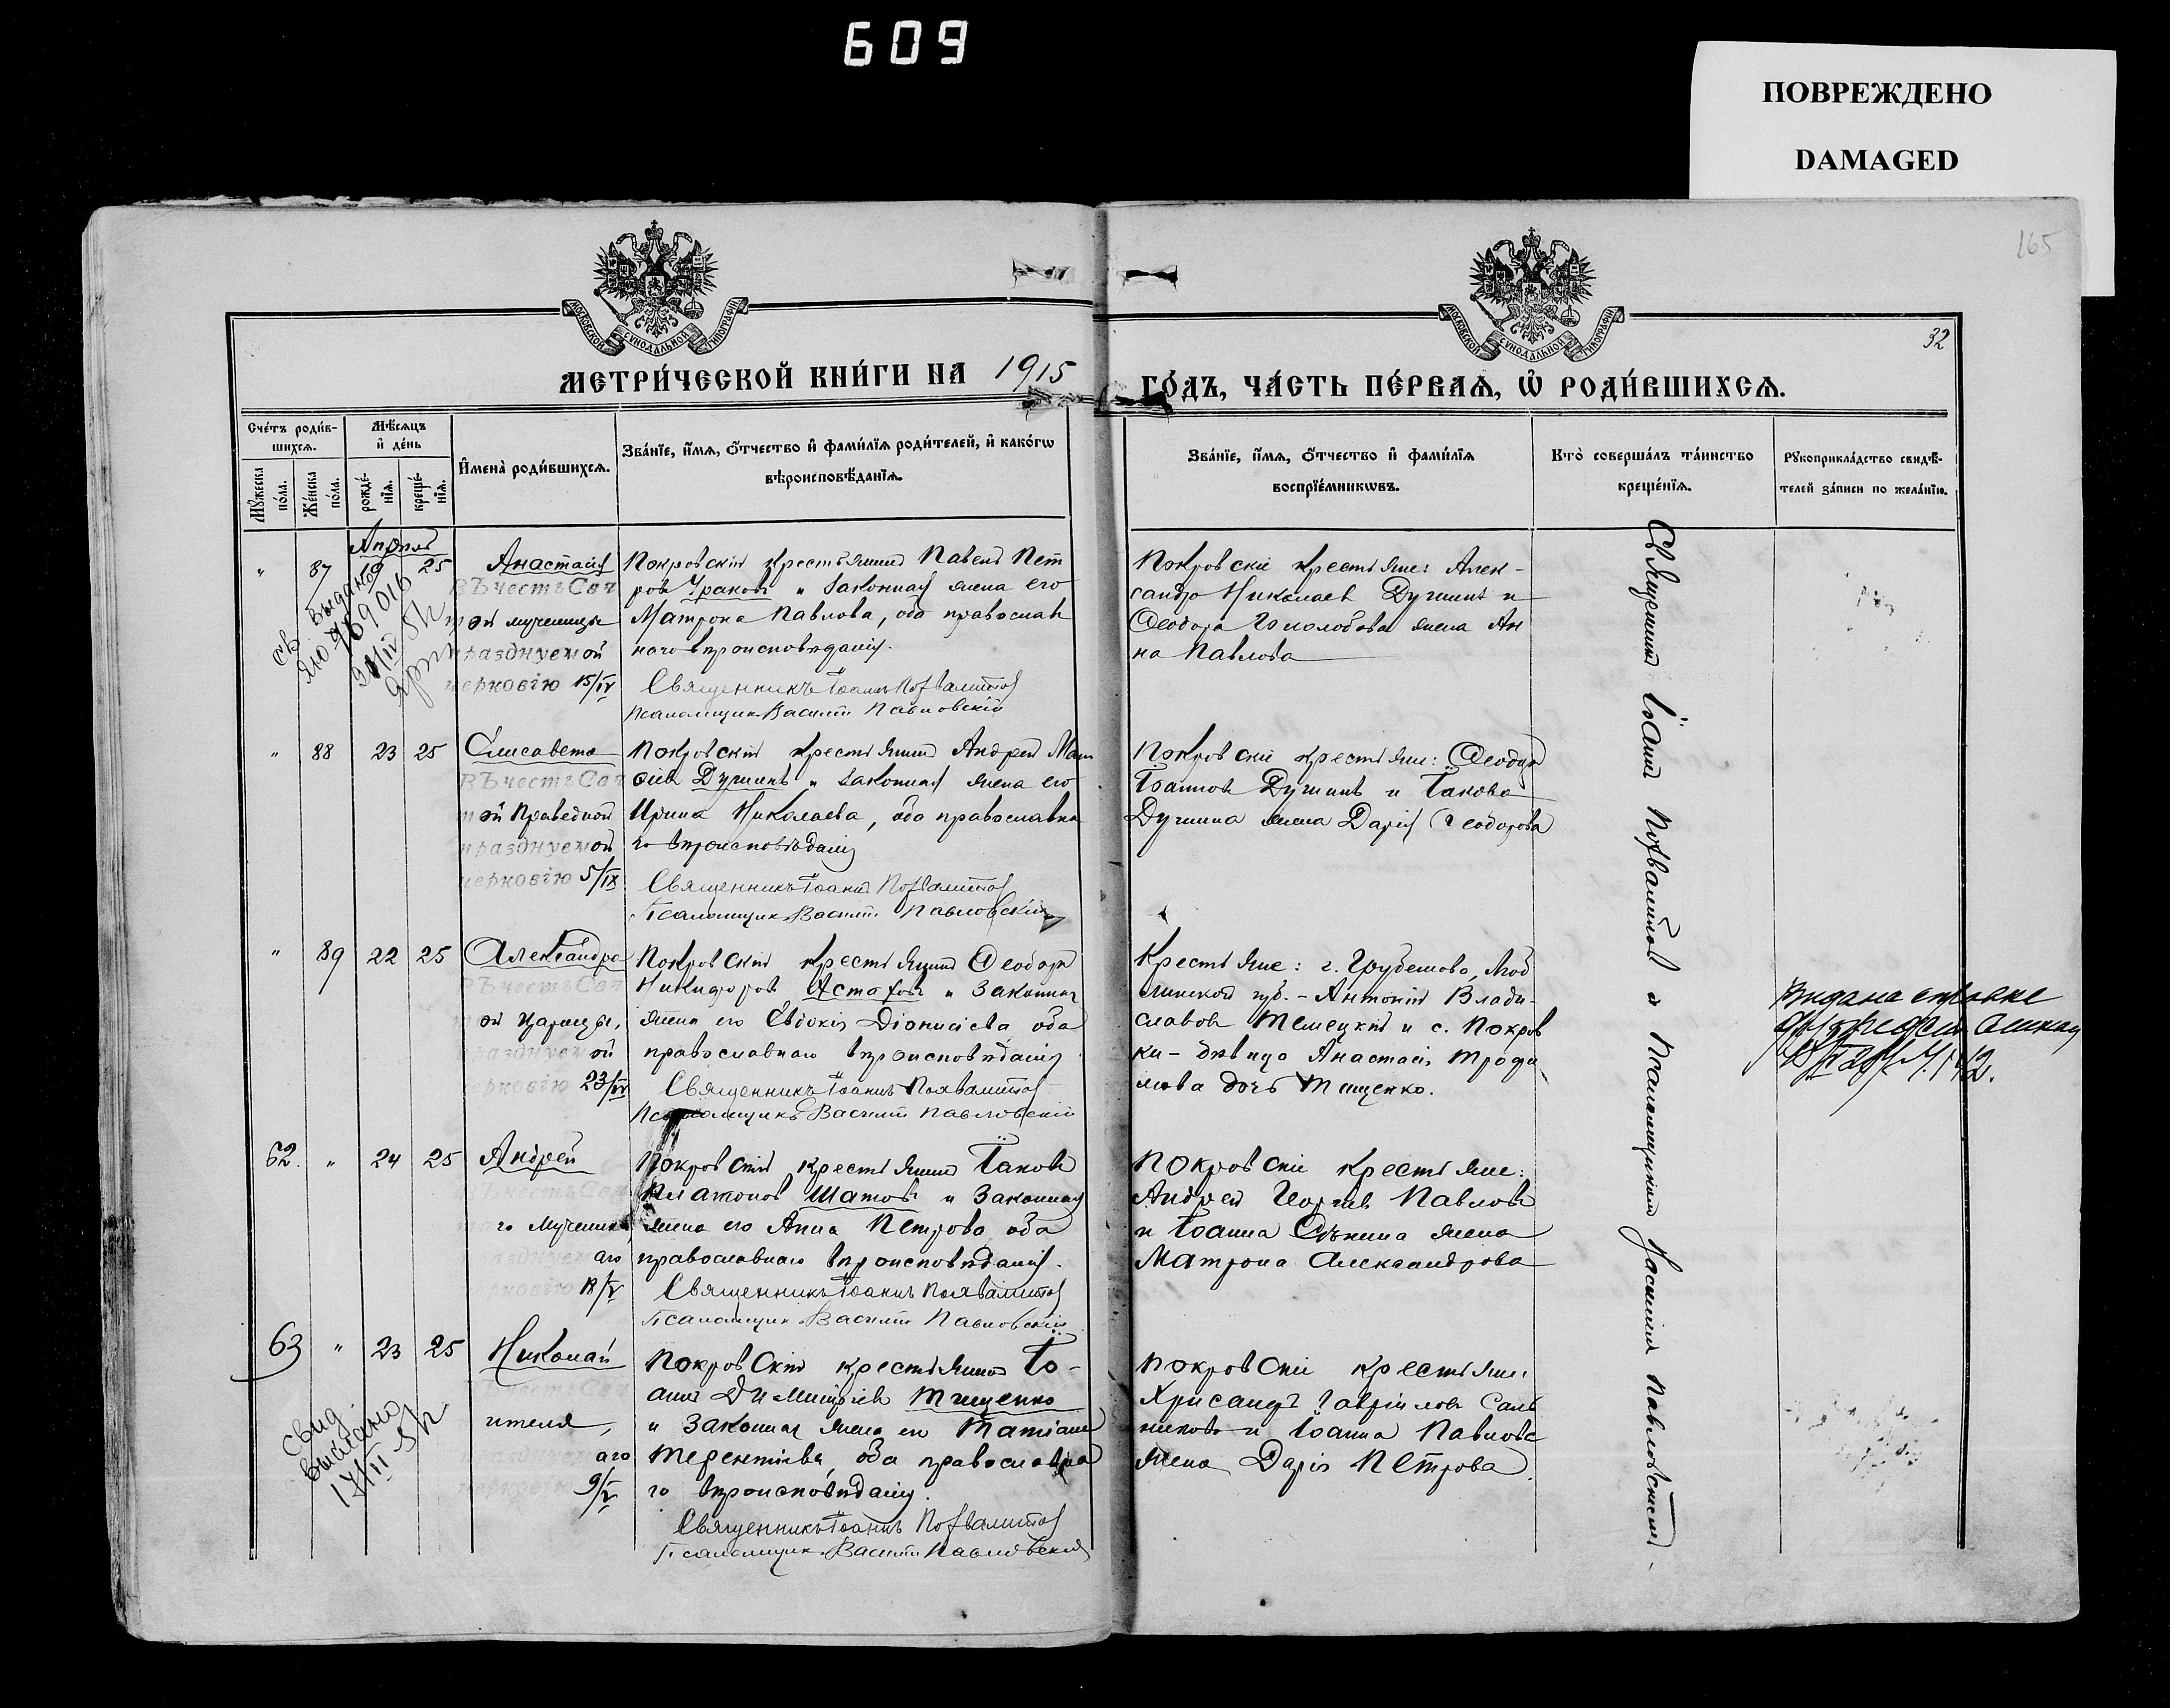 609
ПОВРЕЖДЕНО
DAMAGED
165
32
МОСКОВСКОЙ СУНОДАЛЬНОЙ ТИПОГРАФІИ
МОСКОВСКОЙ СУНОДАЛЬНОЙ ТИПОГРАФІИ
МЕТРИ́ЧЕСКОЙ КНИ́ГИ НА 1915
ГО́ДЪ, ЧА́СТЬ ПЕ́РВАѦ, Ѡ҆ РОДИ́ВШИХСѦ.
Сче́тъ роди́в-
шихсѧ.
Мꙋ́жеска
по́ла.
Же́нска
по́ла.
Мѣ́сѧцъ
и҆ де́нь
рожде́-
нїѧ.
креще́-
нїѧ.
И҆мена̀ роди́вшихсѧ.
Зва́нїе, и҆́мѧ, ѻ҆́тчество и҆ фами́лїѧ роди́телей, и҆ како́гѡ
вѣроисповѣ́данїѧ.
Зва́нїе, и҆́мѧ, ѻ҆́тчество и҆ фами́лїѧ
воспрїе́мникѡвъ.
Кто̀ соверша́лъ та́инство
креще́нїѧ.
Рꙋкоприкла́дство свидѣ́-
телей за́писи по жела́нїю.
Апрѣль
" 87 25 Анастасія
Въ честь Свя
той мученицы
празднуемой
церковію 15/IV
Покровскій крестьянинъ Павелъ Пет
ровъ Ураковъ и законная жена его
Матрона Павлова, оба православ
наго вѣроисповѣданія.
Священникъ Іоаннъ Похвалитовъ
Псаломщикъ Василій Павловскій
Покровскіе крестьяне: Алек-
сандръ Николаевъ Душинъ и
Ѳеодора Гололобова жена Ан
на Павлова
" 88 23 25 Елисавета
Въ честь Свя
той Праведной
празднуемой
церковію 5/IX
Покровскій крестьянинъ Андрей Мат
ѳіевъ Душинъ и законная жена его
Ирина Николаева, оба православна
го вѣроисповѣданія
Священникъ Іоаннъ Похвалитовъ
Псаломщикъ Василій Павловскій
Покровскіе крестьяне: Ѳеодоръ
Іоанновъ Душинъ и Іакова
Душина жена Дарія Ѳеодорова
" 89 22 25 Александра
Въ честь Свя
ой Царицы,
ой
церковію 23/IV
Покровскій крестьянинъ Ѳеодоръ
Никифоровъ Астаховъ и законная
жена его Евдокія Діонисіева, оба
православнаго вѣроисповѣданія
Священникъ Іоаннъ Похвалитовъ
Псаломщикъ Василій Павловскій
Крестьяне: г. Грубешова, Люб
линской губ. - Антоній Влади-
славовъ и с. Покров
ки - дѣвица Анастасія Трофи
мова дочь Тищенко.
Выдана справка
62. " 24 25 Андрей
Въ честь Свя
го Мученика
аго
церковію 18/V
Покровскій крестьянинъ Іаковъ
Платоновъ Шатовъ и законная
жена его Анна Петрова, оба
православнаго вѣроисповѣданія.
Священникъ Іоаннъ Похвалитовъ
Псаломщикъ Василій Павловскій
Покровскіе крестьяне:
Андрей Георгіевъ Павловъ
и Іоанна жена
Матрона Александрова
63 " 23 25 Николай
ителя,
аго
9/V
Покровскій крестьянинъ Іо-
аннъ Димитріевъ Тищенко
и законная жена его Татіана
Терентіева, оба православна
го вѣроисповѣданія.
Священникъ Іоаннъ Похвалитовъ
Псаломщикъ Василій Павловскій
Покровскіе крестьяне:
Хрисанфъ Гавріиловъ Саль
никовъ и Іоанна Павлова
жена Дарія Петрова.
Свид.
выслано
17/II
Священникъ Іоаннъ Похвалитовъ и Псаломщикъ Василій Павловскій